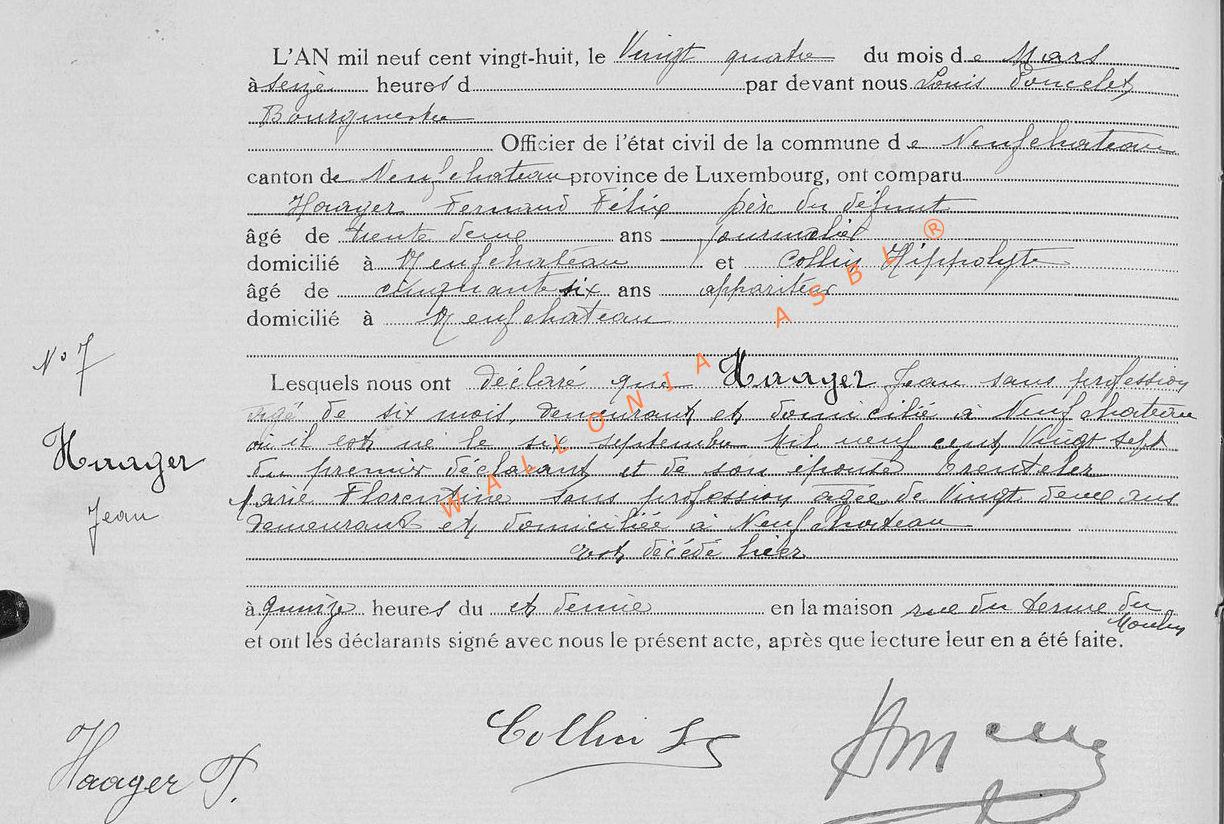 L'AN mil neuf cent vingt-huit, le Vingt quatre du mois de Mars
à seize heures d par devant nous Louis Poncelet
Bourgmestre
Officier de l'état civil de la commune de Neufchateau
canton de Neufchateau province de Luxembourg, ont comparu
Haager Fernand Félix père du défunt
âgé de trente deux ans journalier
domicilié à Neufchateau et Collin Hippolyte
âgé de cinquante six ans appariteur
domicilié à Neufchateau
No 7
Lesquels nous ont déclaré que Haager Jean sans profession
agé de six mois, demeurant et domicilié à Neufchateau
où il est né le six septembre Mil neuf cent Vingt sept
Haager
du premier déclarant et de son épouse
Marie Florentine sans profession, agée de Vingt deux ans
Jean
demeurant et domiciliée à Neufchateau
est décédé hier
à quinze heures du et demie en la maison rue du Terme du
Moulin
et ont les déclarants signé avec nous le présent acte, après que lecture leur en a été faite.
WALLONIA ASBL ®
Collin
Haager F.